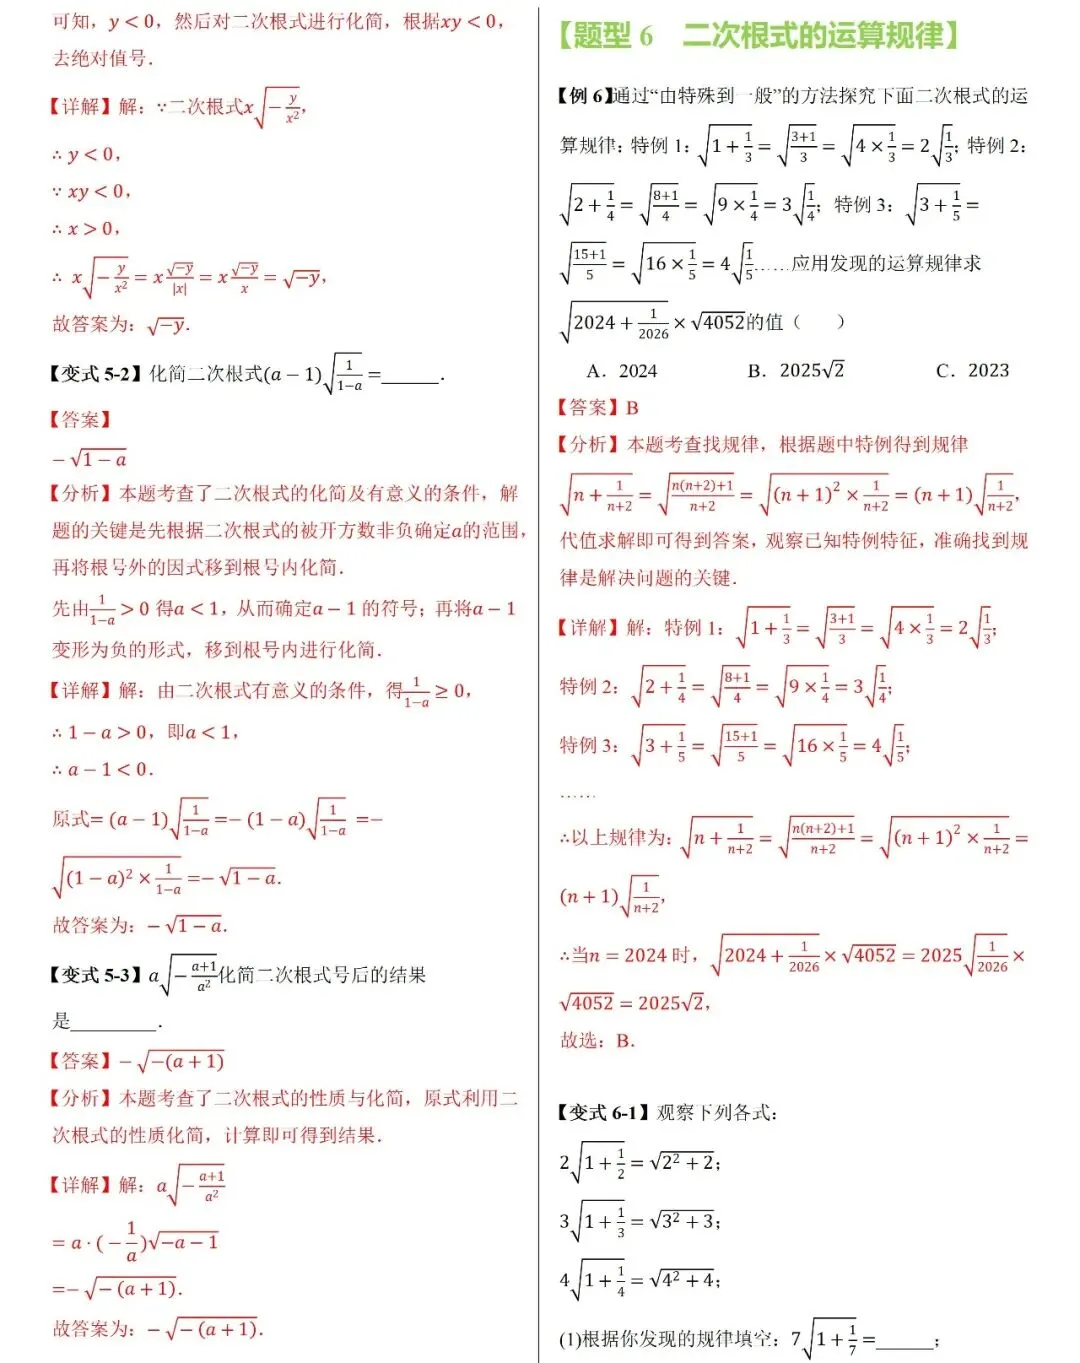 可知，y<0，然后对二次根式进行化简，根据xy<0，
去绝对值号．
【详解】解：∵二次根式x√(−y/x²)，
∴y<0，
∵xy<0，
∴x>0，
∴ x√(−y/x²)=x√(−y)/|x|=x√(−y)/x=√(−y)，
故答案为：√(−y)．
【变式 5-2】化简二次根式(a−1)√(1/(1−a))=______．
【答案】
−√(1−a)
【分析】本题考查了二次根式的化简及有意义的条件，解
题的关键是先根据二次根式的被开方数非负确定a的范围，
再将根号外的因式移到根号内化简．
先由1/(1−a)>0 得a<1，从而确定a−1 的符号；再将a−1
变形为负的形式，移到根号内进行化简．
【详解】解：由二次根式有意义的条件，得1/(1−a)≥0，
∴1−a>0，即a<1，
∴a−1<0．
原式=(a−1)√(1/(1−a))=−(1−a)√(1/(1−a)) =−
√((1−a)²×1/(1−a))=−√(1−a)．
故答案为：−√(1−a)．
【变式 5-3】a√(−(a+1)/a²)化简二次根式号后的结果
是_________．
【答案】−√(−(a+1))
【分析】本题考查了二次根式的性质与化简，原式利用二
次根式的性质化简，计算即可得到结果．
【详解】解：a√(−(a+1)/a²)
=a·(−1/a)√(−a−1)
=−√(−(a+1))．
故答案为：−√(−(a+1))．
【题型 6 二次根式的运算规律】
【例 6】通过“由特殊到一般”的方法探究下面二次根式的运
算规律：特例 1：√(1+1/3)=√((3+1)/3)=√(4×1/3)=2√(1/3)；特例 2：
√(2+1/4)=√((8+1)/4)=√(9×1/4)=3√(1/4)；特例 3：√(3+1/5)=
√((15+1)/5)=√(16×1/5)=4√(1/5)……应用发现的运算规律求
√(2024+1/2026)×√4052的值（　　）
A．2024 B．2025√2 C．2023
【答案】B
【分析】本题考查找规律，根据题中特例得到规律
√(n+1/(n+2))=√((n(n+2)+1)/(n+2))=√((n+1)²×1/(n+2))=(n+1)√(1/(n+2))，
代值求解即可得到答案，观察已知特例特征，准确找到规
律是解决问题的关键．
【详解】解：特例 1：√(1+1/3)=√((3+1)/3)=√(4×1/3)=2√(1/3)；
特例 2：√(2+1/4)=√((8+1)/4)=√(9×1/4)=3√(1/4)；
特例 3：√(3+1/5)=√((15+1)/5)=√(16×1/5)=4√(1/5)；
……
∴以上规律为：√(n+1/(n+2))=√((n(n+2)+1)/(n+2))=√((n+1)²×1/(n+2))=
(n+1)√(1/(n+2))，
∴当n=2024 时，√(2024+1/2026)×√4052=2025√(1/2026)×
√4052=2025√2，
故选：B．
【变式 6-1】观察下列各式：
2√(1+1/2)=√(2²+2)；
3√(1+1/3)=√(3²+3)；
4√(1+1/4)=√(4²+4)；
(1)根据你发现的规律填空：7√(1+1/7)=______；